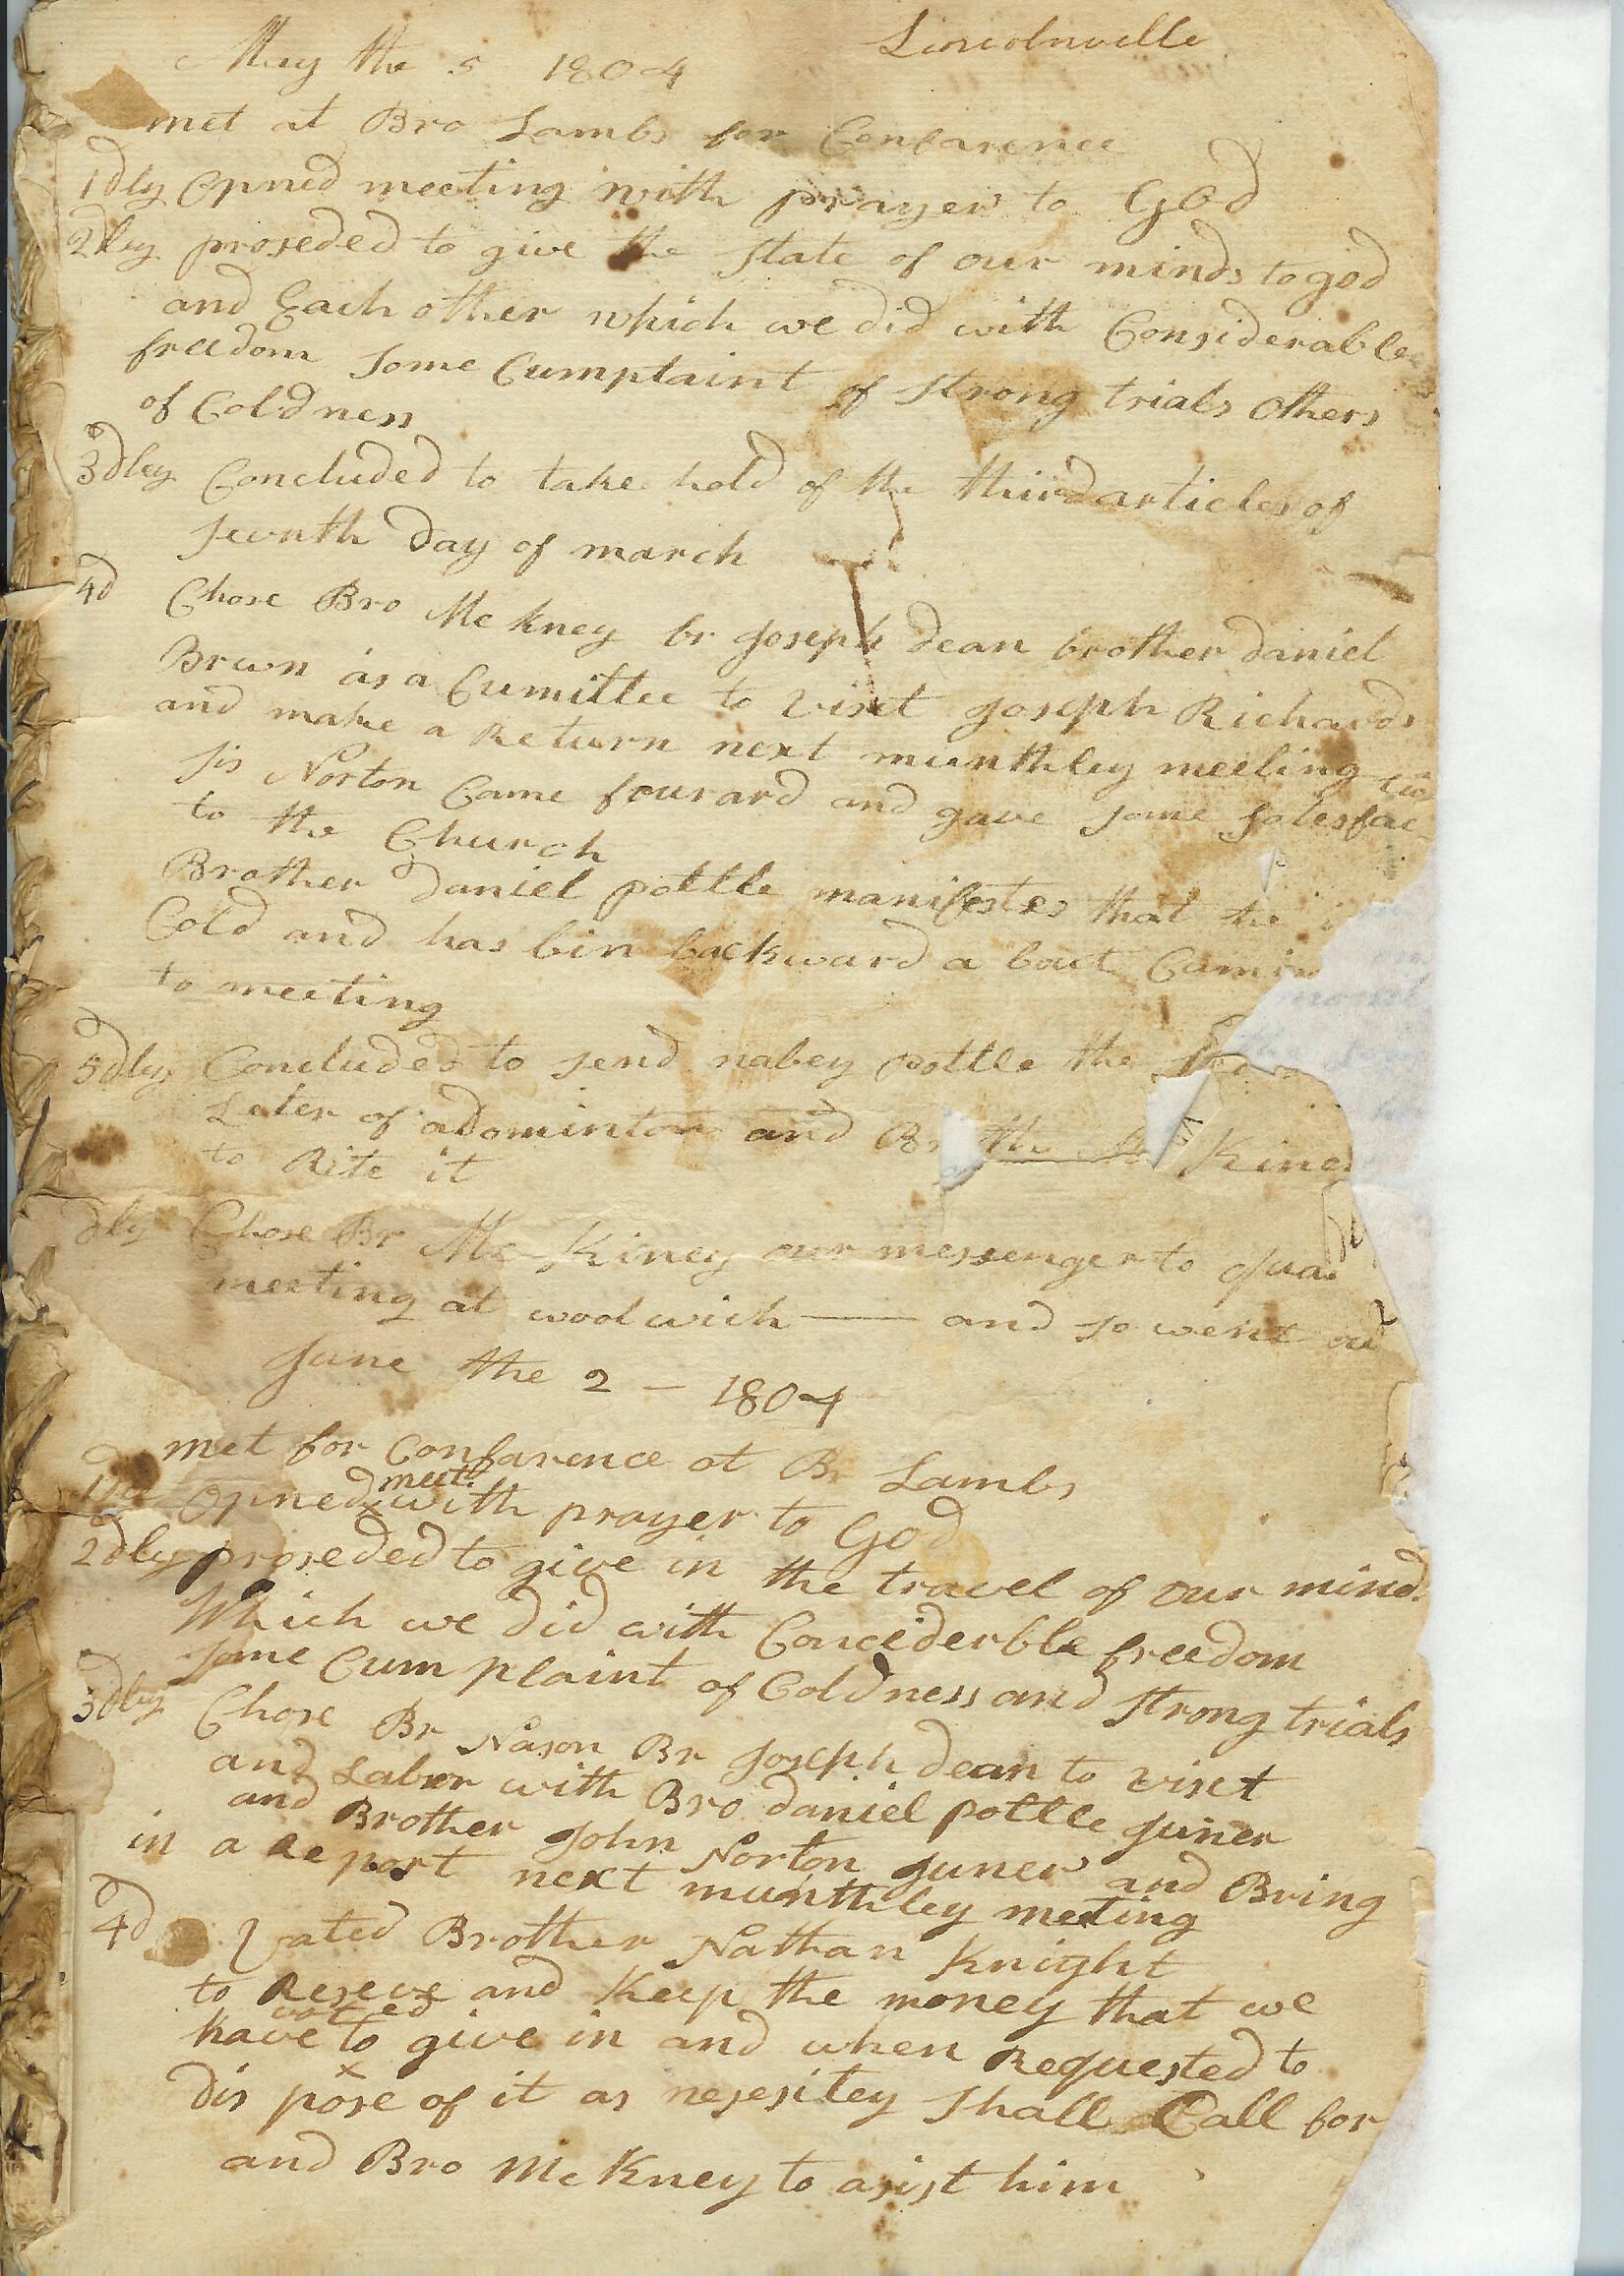 Lincolnville
May the 5 1804
met at Bro Lambs for Confarence
1dly Opned meeting with prayer to God
2dly proseded to give the State of our minds to god
and Each other which we did with Considerable
freedom Some Cumplaint of Strong trials Others
of Coldness
3dley Concluded to take hold of the third articles of
Seventh day of march
4d Chose Bro McKney br Joseph dean brother daniel
Brown as a Cumittee to visit Joseph Richards
and make a Return next munthley meeting
Sis Norton Came fourard and gave Some Satesfac
to the Church
Brother daniel pottle manifestes that he
Cold and has bin backward a bout Camin
to meeting
5dly Concluded to send nabey pottle the
Leter of adominton and
to Rite it
dly Chose Br McKiney our messenger to Quar
meeting at woolwich — and so went out
June the 2 - 1804
met for Confarence at Br Lambs
1dly Opned meet with prayer to God
2dley proseded to give in the travel of our mind
Which we did with Conciderble freedom
Some Cumplaint of Coldness and Strong trials
3dly Chose Br Nason Br Joseph dean to visit
and Labor with Bro daniel pottle Juner
and Brother John Norton Juner and Bring
in a Report next munthley meeting
4d Voted Brother Nathan Knight
to Reseve and Keep the money that we
have voted to give in and when Requested to
dis pose of it as nesesitey Shall Call for
and Bro McKney to asist him